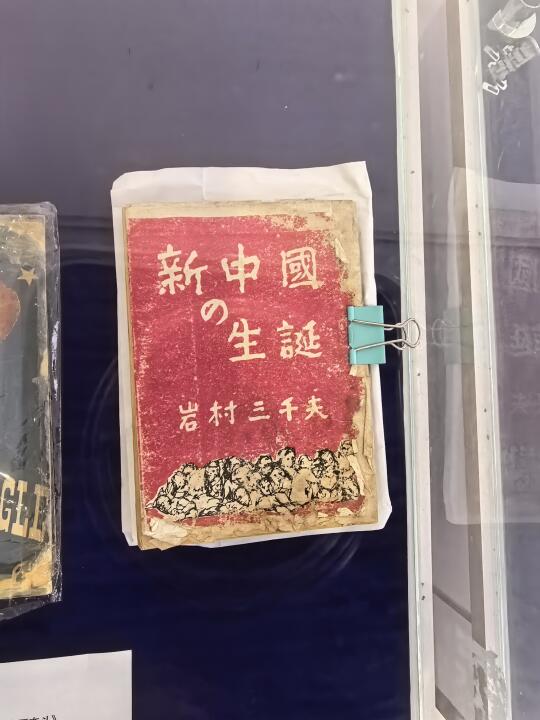 新中國
の
生誕
岩村三千夫